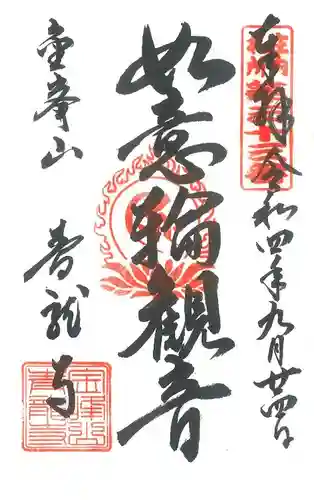 奉拝 令和四年九月廿四日
如意輪観音
宝峯山 青龍寺